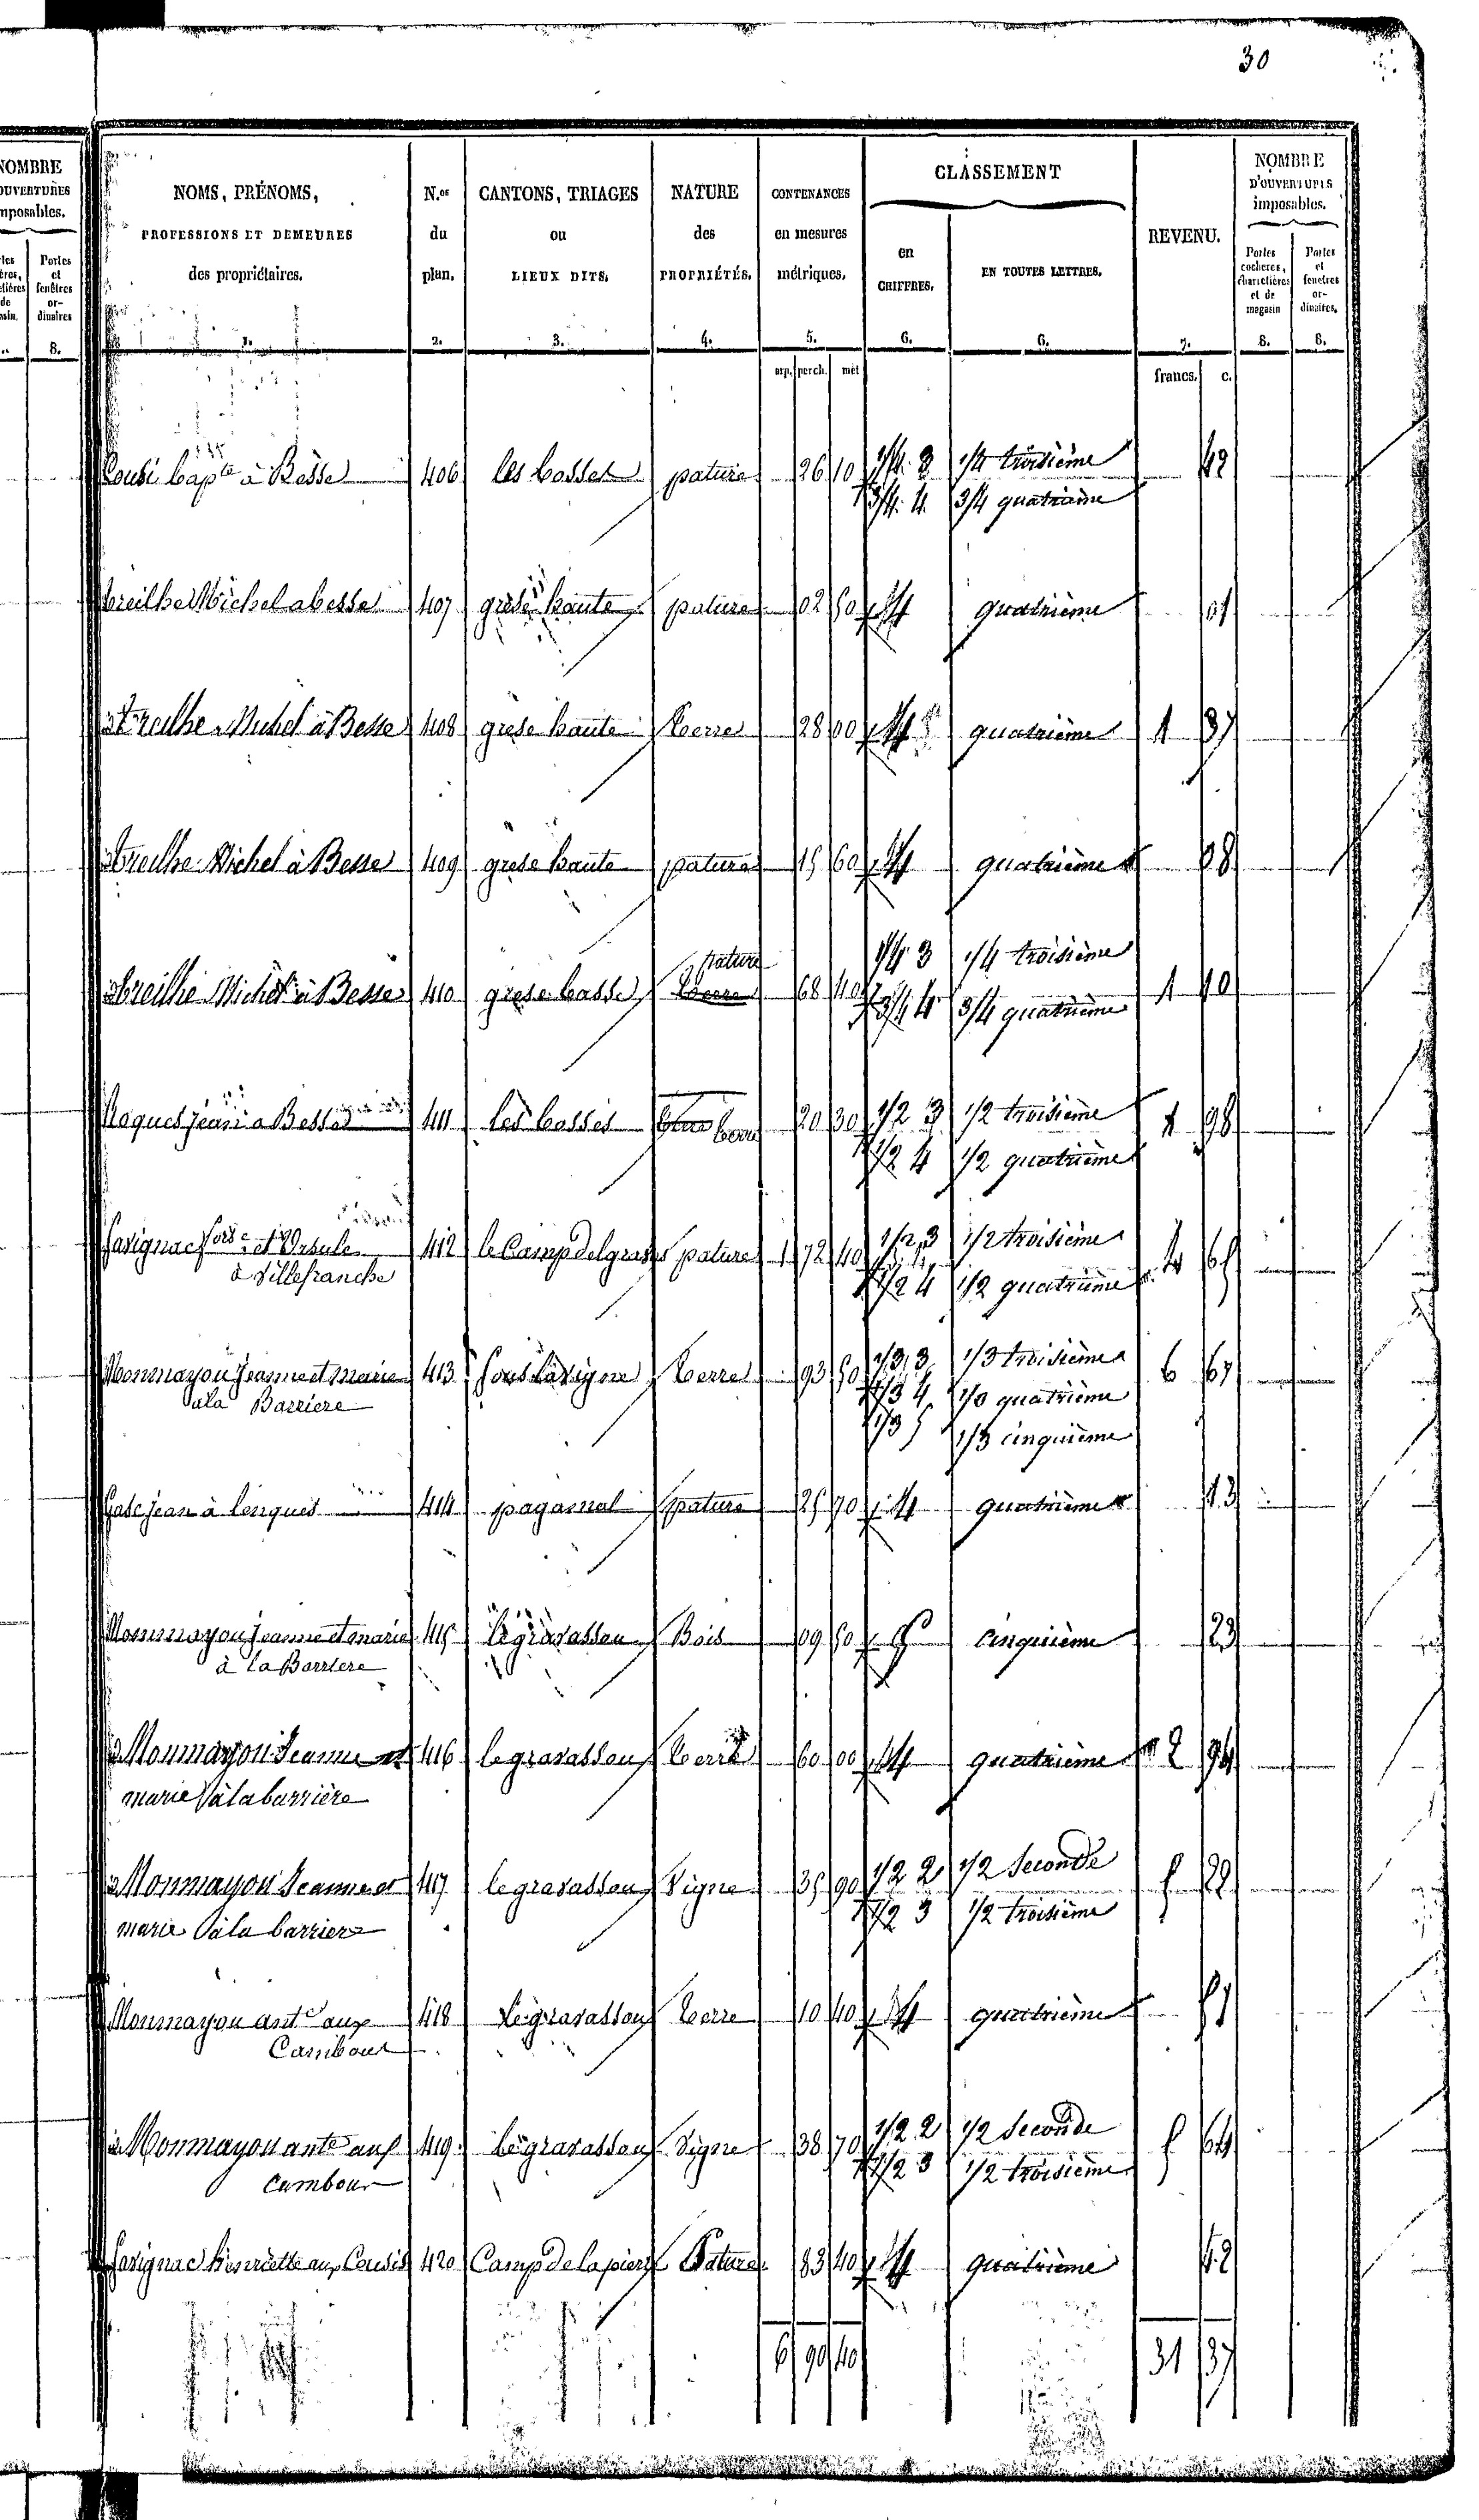 30
NOMBRE
OUVERTURES
mposables.
Portes
et
fenêtres
or-
dinaires
8.
NOMS, PRÉNOMS,
PROFESSIONS ET DEMEURES
des propriétaires.
1.
N.os
du
plan.
2.
CANTONS, TRIAGES
ou
LIEUX DITS.
3.
NATURE
des
PROPRIÉTÉS.
4.
CONTENANCES
en mesures
métriques.
5.
CLASSEMENT
en
CHIFFRES.
6.
EN TOUTES LETTRES.
6.
REVENU.
7.
NOMBRE
D'OUVERTURES
imposables.
Portes
cochères,
charretières
et de
magasin
8.
Portes
et
fenêtres
or-
dinaires.
8.
arp. perch. mèt
francs. c.
bapte à Besse 406 les bosses pature 26 10 1/4 3 1/4 troisième 42
3/4 4 3/4 quatrième
Michel a besse 407 grese haute pature 02 50 4 quatrième 01
Michel à Besse 408 grese haute terre 28 00 4 quatrième 1 37
Michel à Besse 409 grese haute pature 15 60 4 quatrième 08
pature
Michel à Besse 410 grese basse terre 68 40 1/4 3 1/4 troisième 1 10
3/4 4 3/4 quatrième
Roques jean a Besse 411 les bosses terre 20 30 1/2 3 1/2 troisième 1 98
1/2 4 1/2 quatrième
Savignac et Ursule 412 le Camp del gres pature 1 72 40 1/2 3 1/2 troisième 4 65
à Villefranche
1/2 4 1/2 quatrième
Monmayou Jeanne et marie 413 sous la vigne terre 93 50 1/3 3 1/3 troisième 6 67
à la Barriere
1/3 4 1/3 quatrième
1/3 5 1/3 cinquième
jean à lenques 414 pagamal pature 25 70 4 quatrième 13
Monmayou jeanne et marie 415 le gravassou Bois 09 50 5 cinquième 23
à la Barriere
Monmayou Jeanne et 416 le gravassou terre 60 00 4 quatrième 2 94
marie à la barrière
Monmayou Jeanne et 417 le gravassou Vigne 35 90 1/2 2 1/2 Seconde 5 22
marie à la barriere
1/2 3 1/2 troisième
Monmayou ante aux 418 Le gravassou terre 10 40 4 quatrième 51
Cambous
Monmayou ante aux 419 le gravassou Vigne 38 70 1/2 2 1/2 Seconde 5 64
Cambous
1/2 3 1/2 troisième
Savignac henriette aux 420 Camp de la piere Pature 83 40 4 quatrième 42
6 90 40 31 37